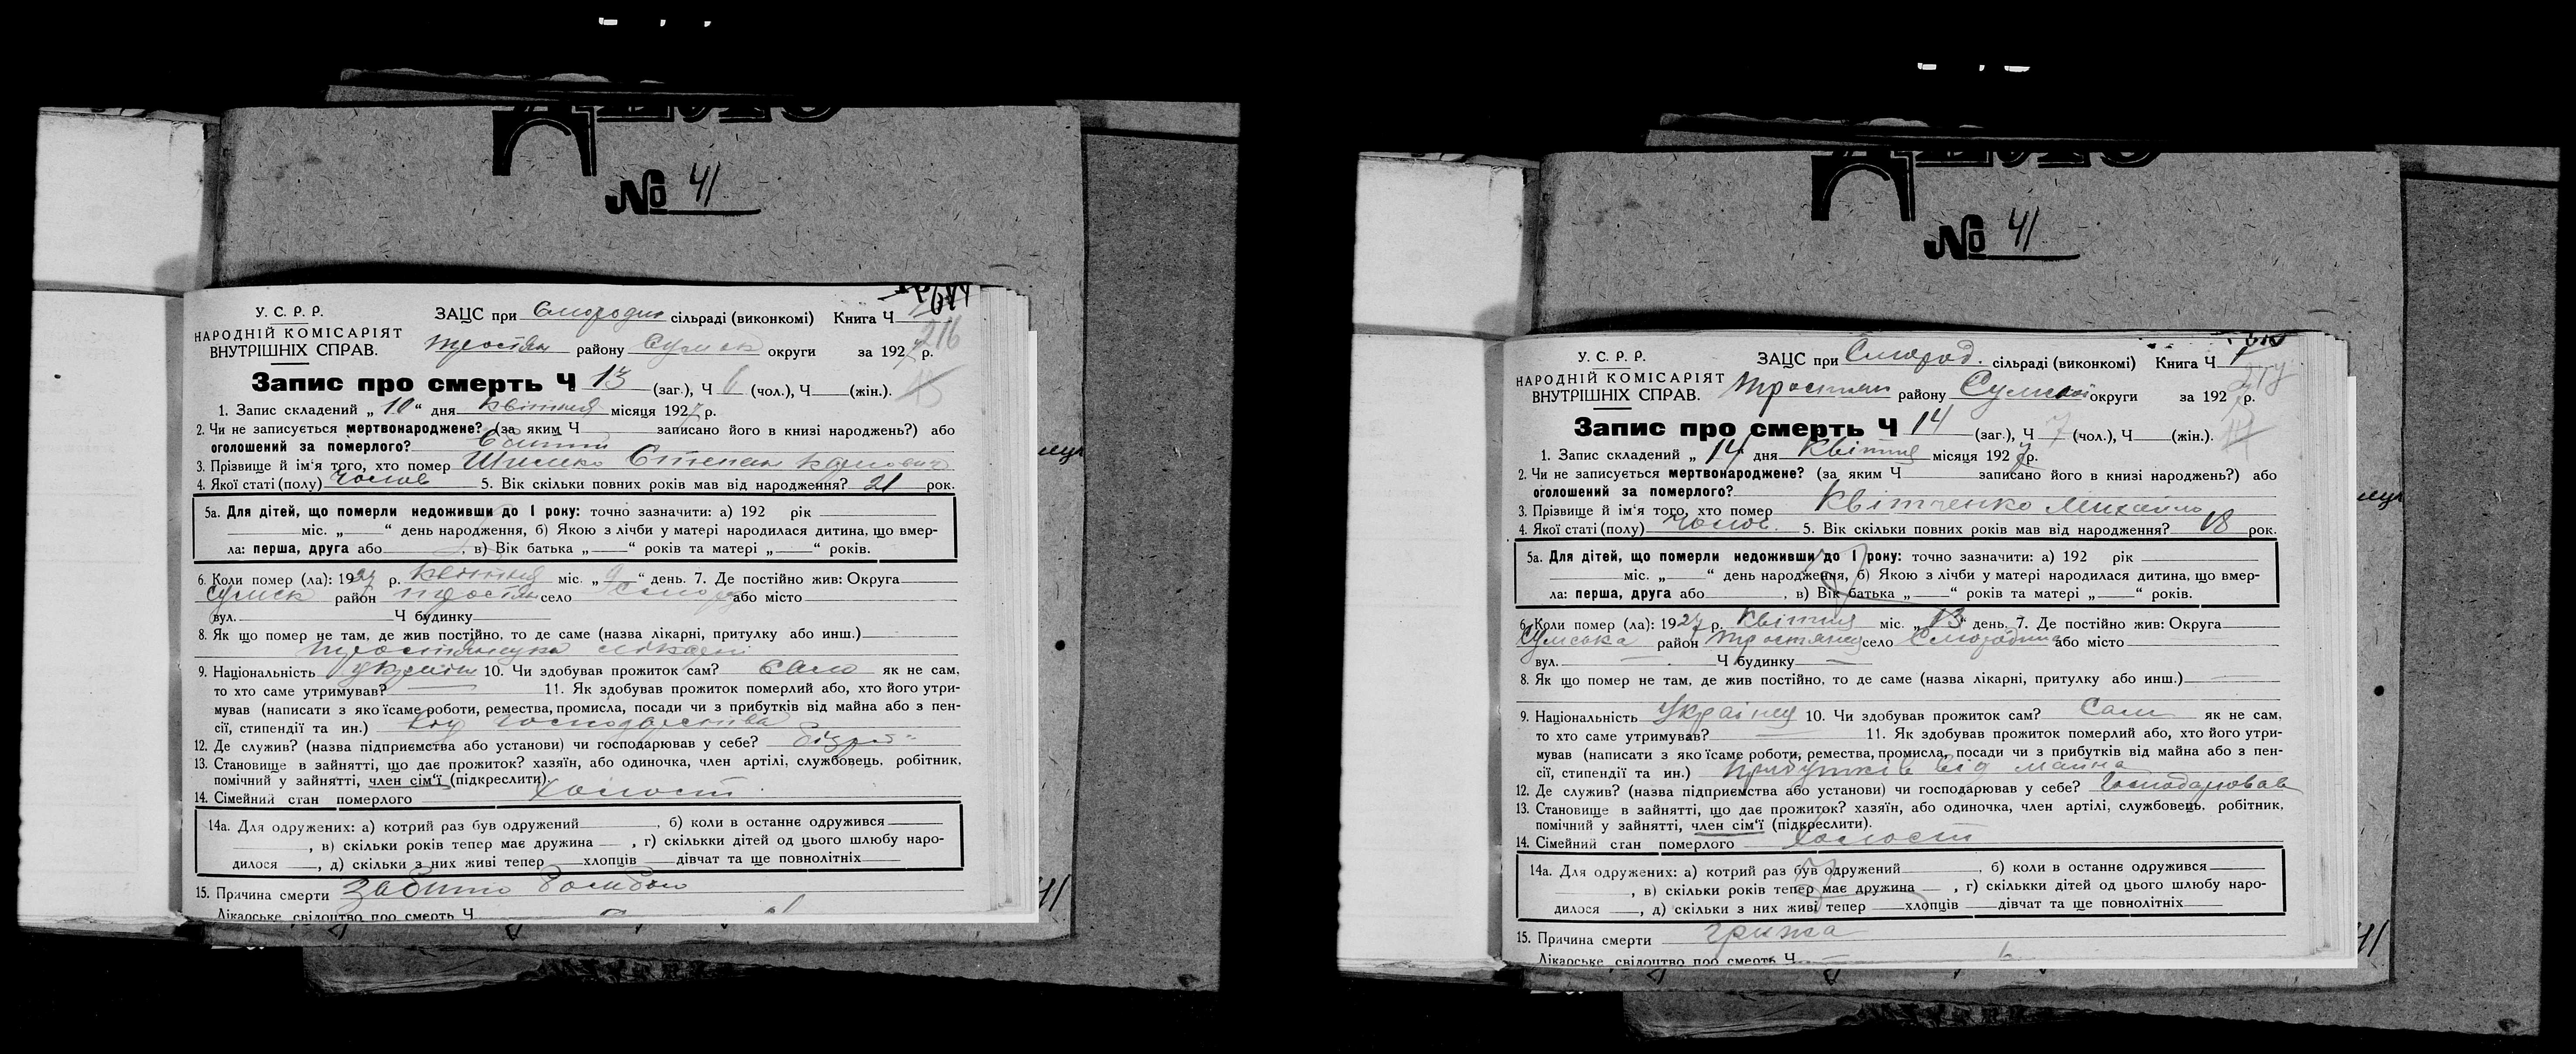 № 41
У. С. Р. Р.
НАРОДНІЙ КОМІСАРІЯТ
ВНУТРІШНІХ СПРАВ.
ЗАЦС при Смородин сільраді (виконкомі) Книга Ч
216
Тростян району Сумск округи за 1927 р.
Запис про смерть Ч 13 (заг.), Ч 6 (чол.), Ч (жін.).
1. Запис складений „ 10 “ дня квітня місяця 1927 р.
2. Чи не записується мертвонароджене? (за яким Ч записано його в книзі народжень?) або
оголошений за померлого?
3. Прізвище й ім‘я того, хто помер Степан
4. Якої статі (полу) чолов 5. Вік скільки повних років мав від народження? 21 рок.
5а. Для дітей, що померли недоживши до 1 року: точно зазначити: а) 192 рік
міс. „ “ день народження, б) Якою з лічби у матері народилася дитина, що вмер-
ла: перша, друга або , в) Вік батька „ “ років та матері „ “ років.
6. Коли помер (ла): 1927 р. квітня міс. „ 9 “ день. 7. Де постійно жив: Округа
Сумск район Тростян село Смород або місто
вул. Ч будинку
8. Як що помер не там, де жив постійно, то де саме (назва лікарні, притулку або инш.)
Тростянецька
9. Національність 10. Чи здобував прожиток сам? само як не сам,
то хто саме утримував? 11. Як здобував прожиток померлий або, хто його утри-
мував (написати з якоїсаме роботи, ремества, промисла, посади чи з прибутків від майна або з пен-
сії, стипендії та ин.) господарства
12. Де служив? (назва підприємства або установи) чи господарював у себе?
13. Становище в зайнятті, що дає прожиток? хазяїн, або одиночка, член артілі, службовець, робітник,
помічний у зайнятті, член сім‘ї (підкреслити).
14. Сімейний стан померлого холост
14а. Для одружених: а) котрий раз був одружений , б) коли в останнє одружився
, в) скільки років тепер має дружина , г) скількки дітей од цього шлюбу наро-
дилося , д) скільки з них живі тепер хлопців дівчат та ще повнолітніх
15. Причина смерти забито бомбою
Лікарське свідоцтво про смерть Ч
№ 41
У. С. Р. Р.
НАРОДНІЙ КОМІСАРІЯТ
ВНУТРІШНІХ СПРАВ.
ЗАЦС при Смород. сільраді (виконкомі) Книга Ч 1
Тростян району Сумской округи за 192 р.
Запис про смерть Ч 14 (заг.), Ч 7 (чол.), Ч (жін.).
1. Запис складений „ 14 “ дня Квітня місяця 1927 р.
2. Чи не записується мертвонароджене? (за яким Ч записано його в книзі народжень?) або
оголошений за померлого?
3. Прізвище й ім‘я того, хто помер Квітченко Михайло
4. Якої статі (полу) чолов. 5. Вік скільки повних років мав від народження? 18 рок.
5а. Для дітей, що померли недоживши до 1 року: точно зазначити: а) 192 рік
міс. „ “ день народження, б) Якою з лічби у матері народилася дитина, що вмер-
ла: перша, друга або , в) Вік батька „ “ років та матері „ “ років.
6. Коли помер (ла): 1927 р. Квітня міс. „ 13 “ день. 7. Де постійно жив: Округа
Сумська район Тростянец село Смородина або місто
вул. Ч будинку
8. Як що помер не там, де жив постійно, то де саме (назва лікарні, притулку або инш.)
9. Національність Українец 10. Чи здобував прожиток сам? Сам як не сам,
то хто саме утримував? 11. Як здобував прожиток померлий або, хто його утри-
мував (написати з якоїсаме роботи, ремества, промисла, посади чи з прибутків від майна або з пен-
сії, стипендії та ин.) прибутків від майна
12. Де служив? (назва підприємства або установи) чи господарював у себе? Господарював
13. Становище в зайнятті, що дає прожиток? хазяїн, або одиночка, член артілі, службовець, робітник,
помічний у зайнятті, член сім‘ї (підкреслити).
14. Сімейний стан померлого холост
14а. Для одружених: а) котрий раз був одружений , б) коли в останнє одружився
, в) скільки років тепер має дружина , г) скількки дітей од цього шлюбу наро-
дилося , д) скільки з них живі тепер хлопців дівчат та ще повнолітніх
15. Причина смерти грижа
Лікарське свідоцтво про смерть Ч